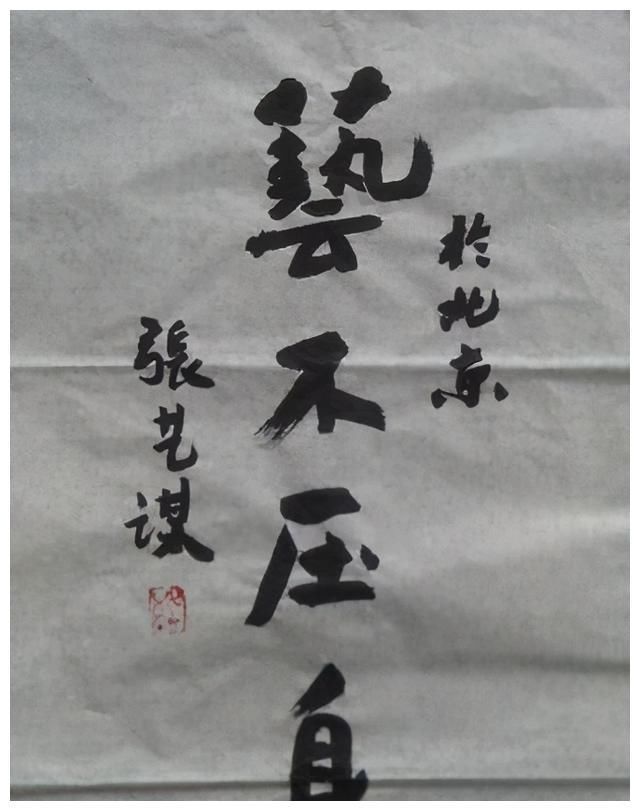 於北京
藝不压身
張艺谋